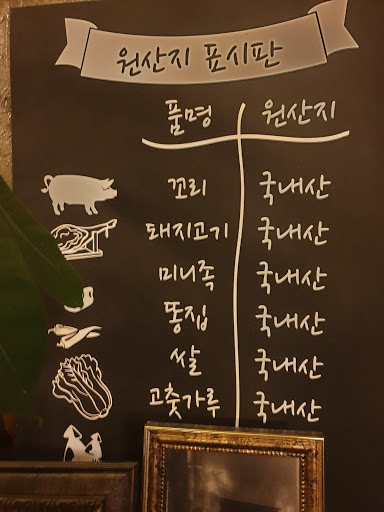 원산지 표시판
품명 원산지
꼬리 국내산
돼지고기 국내산
미니족 국내산
똥집 국내산
쌀 국내산
고춧가루 국내산